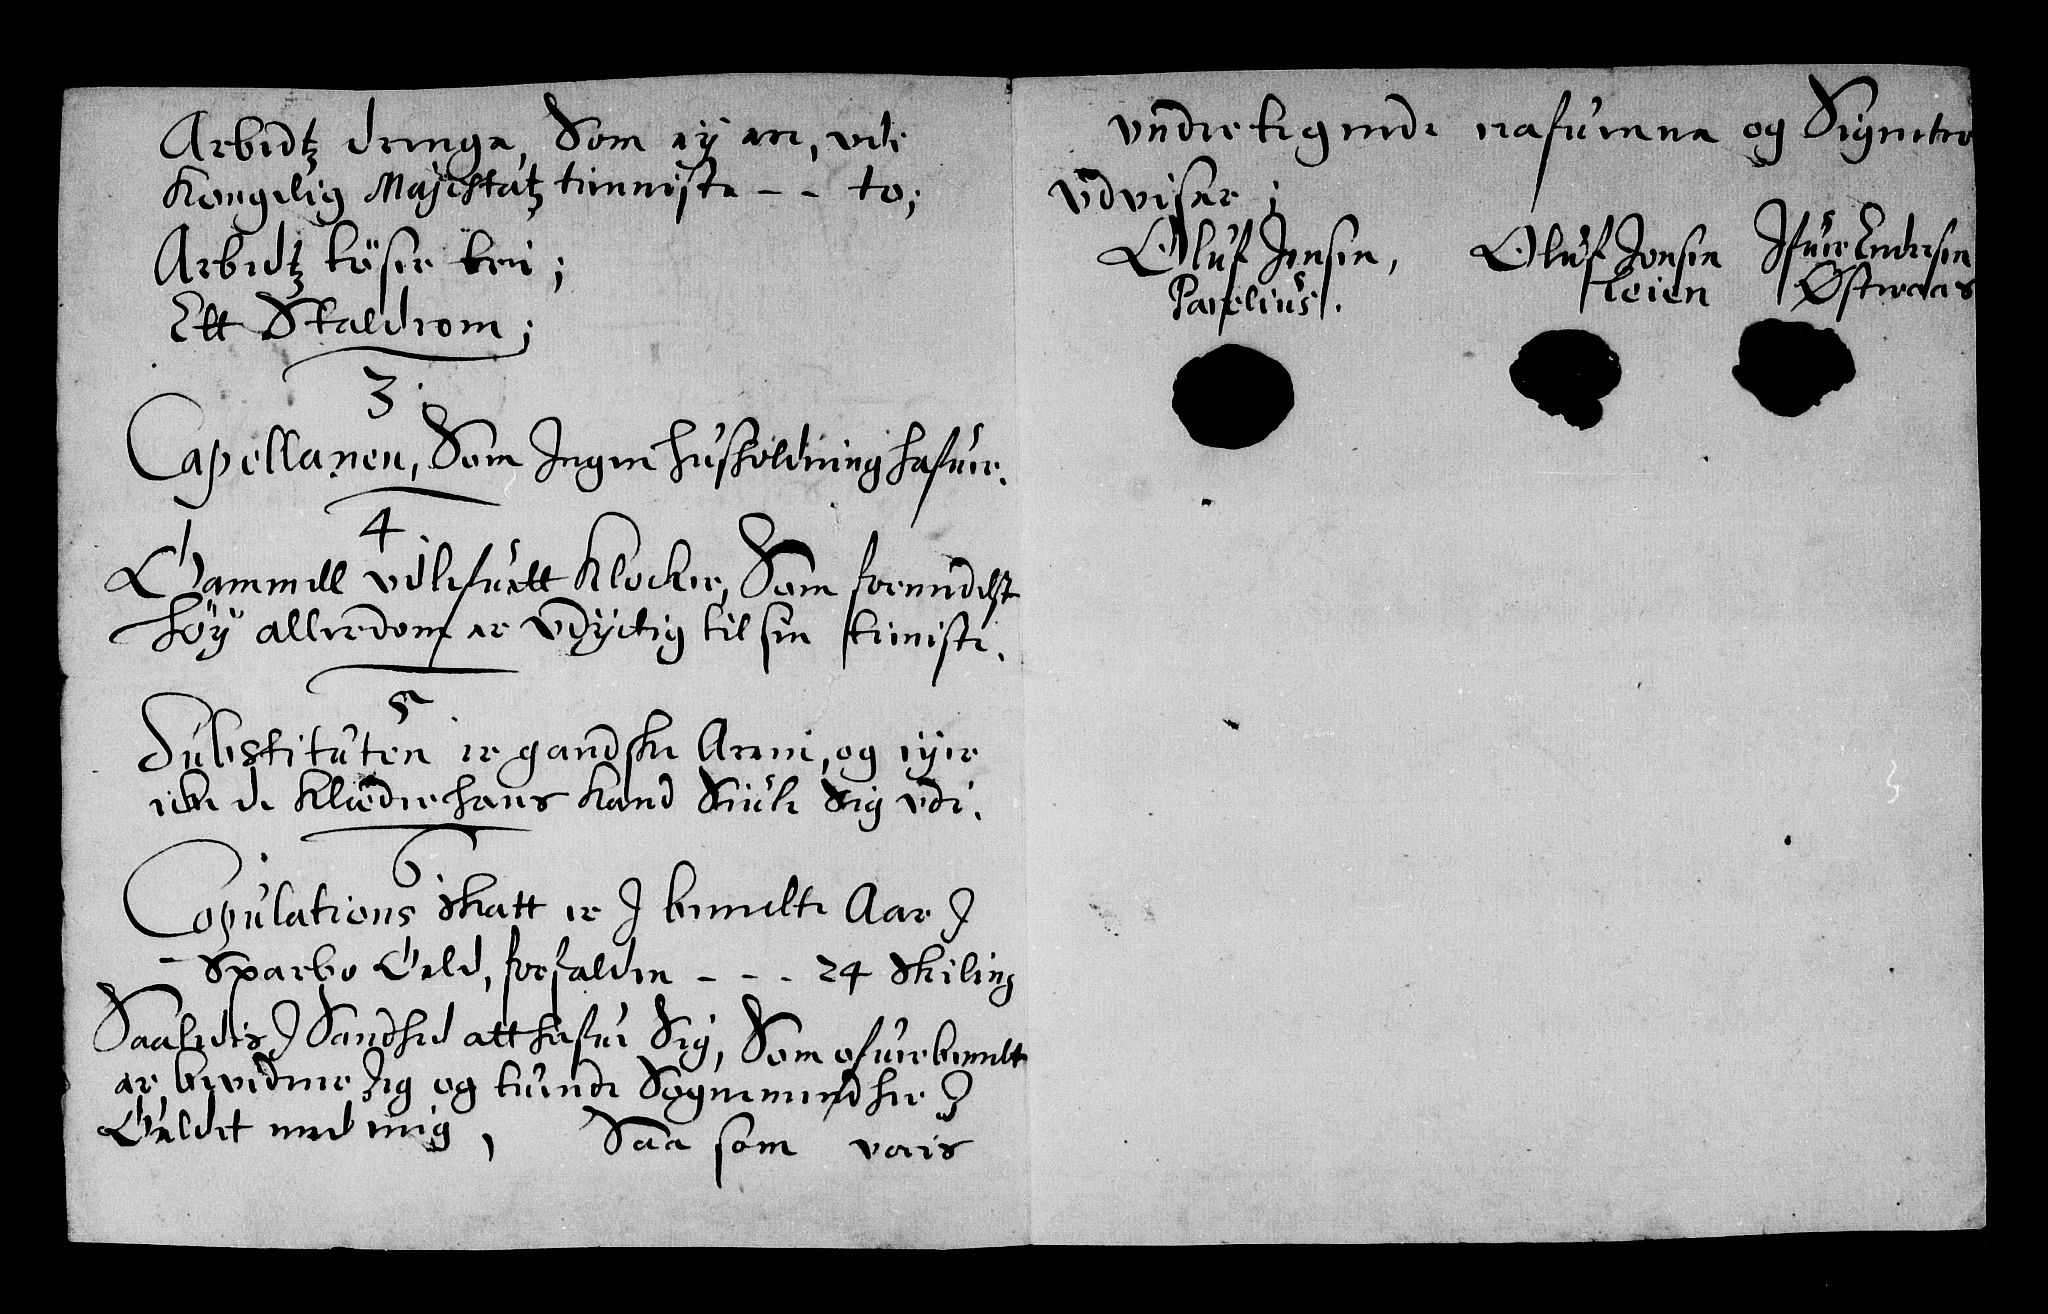 Arbidtz drenge, Som ey ere, udi
Kongelig Majestatz tienniste - - to;
Arbidtz køSer trei;
Ett Staldrom;
3.
Capellanen, Som Ingen husholdning hafuer.
4.
Gammell udlefuett Klocker, Som formedelst
høy allerdom er Udyctig til sin tienniste.
5.
Substituten er gandske Arm, og eyer
icke de Klæder hans kand Skiule Sig udi.
6.
Copulations Skatt er J bemelte Aar J
Sparbo Geld, forfalden - - - 24 Skiling
Saaledis J Sandhed att hafue Sig, Som ofuerbemelt
er, bevidner Jeg og tuende Sognemend her J
Geldet med mig, Saa som voris
undertegnede nafuenne og Signeter
udviser;
Oluf Jensen, Oluf Jonsen Ifuer Endersen
Parelius. Leien Østeraas